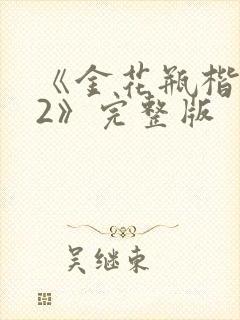 《金花瓶楷
2》完整版
吴继东